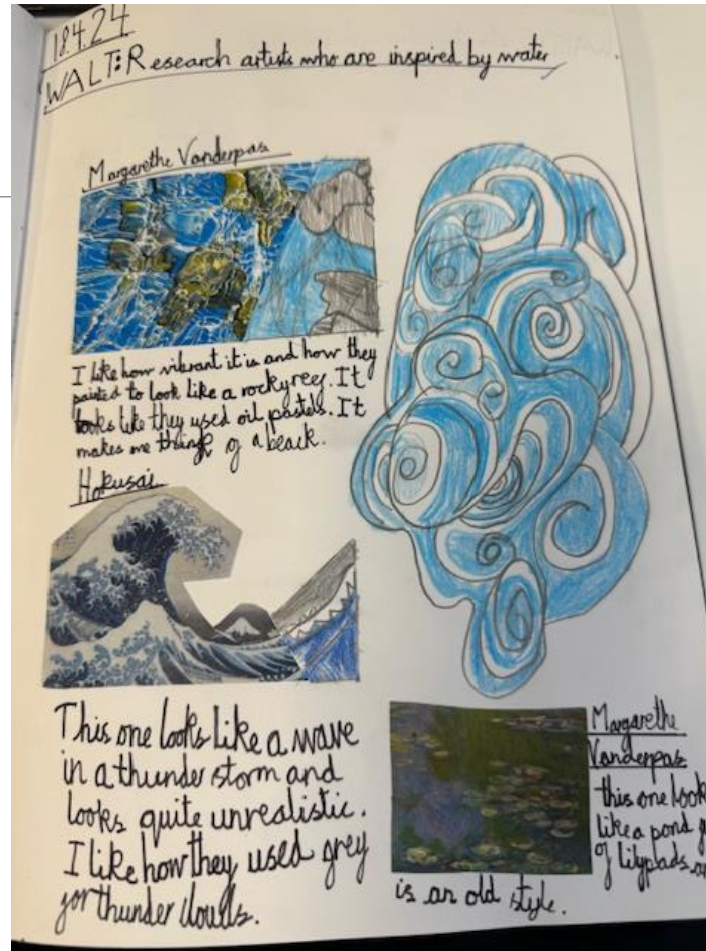 18.4.24
WALT: Research artists who are inspired by water
Margarethe Vanderpas
I like how vibrant it is and how they
painted to look like a rocky reef. It
looks like they used oil pastels. It
makes me of a beach.
Hokusai
This one looks like a wave
in a thunder storm and
looks quite unrealistic.
I like how they used grey
for thunder clouds.
Margarethe
Vanderpas
this one look
like a pond
of lilypads
is an old style.